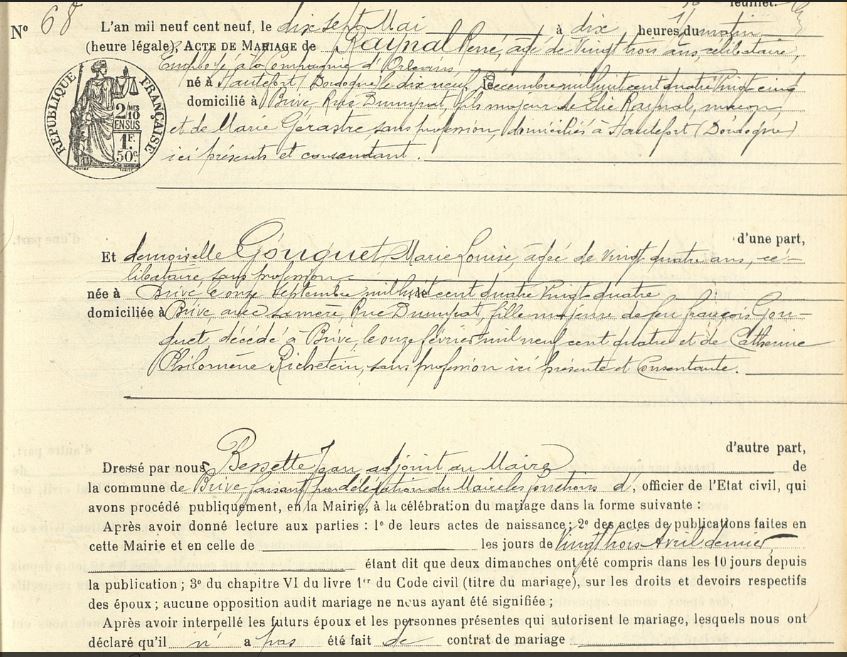 feuillet.
N° 68 L'an mil neuf cent neuf, le dix sept Mai à dix heures, du matin
(heure légale), ACTE DE MARIAGE de Raynal René, âgé de vingt trois ans, célibataire,
Employé à la Compagnie d'Orléans,
né à Hautefort (Dordogne) le dix neuf Décembre mil huit cent quatre vingt cinq
domicilié à Brive Rue Dumyrat, fils majeur de Elie Raynal, maçon
et de Marie Gérastre sans profession, domiciliés à Hautefort (Dordogne)
ici présents et consentant.
RÉPUBLIQUE FRANÇAISE
2/10
EN SUS
1F.
50c
d'une part,
Et demoiselle Gouquet Marie Louise, âgée de vingt quatre ans, cé-
libataire, sans profession
née à Brive le onze Septembre mil huit cent quatre vingt quatre
domiciliée à Brive avec sa mère, Rue Dumyrat, fille majeure de feu françois Gou-
quet, décédé à Brive, le onze février mil neuf cent quatre et de Catherine
Philomène Richetein, sans profession ici présente et Consentante.
d'autre part,
Dressé par nous Bessette Jean adjoint au Maire de
la commune de Brive faisant par délégation du Maire les fonctions d', officier de l'Etat civil, qui
avons procédé publiquement, en la Mairie, à la célébration du mariage dans la forme suivante :
Après avoir donné lecture aux parties : 1° de leurs actes de naissance ; 2° des actes de publications faites en
cette Mairie et en celle de les jours de Vingt trois Avril dernier
étant dit que deux dimanches ont été compris dans les 10 jours depuis
la publication ; 3° du chapitre VI du livre 1er du Code civil (titre du mariage), sur les droits et devoirs respectifs
des époux ; aucune opposition audit mariage ne nous ayant été signifiée ;
Après avoir interpellé les futurs époux et les personnes présentes qui autorisent le mariage, lesquels nous ont
déclaré qu'il n' a pas été fait de contrat de mariage